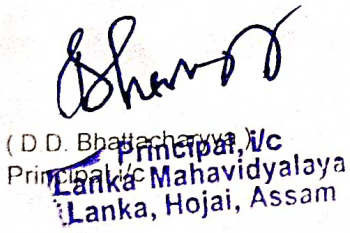 ( D.D. Bhattacharyya )
Principal i/c
Principal, i/c
Lanka Mahavidyalaya
Lanka, Hojai, Assam